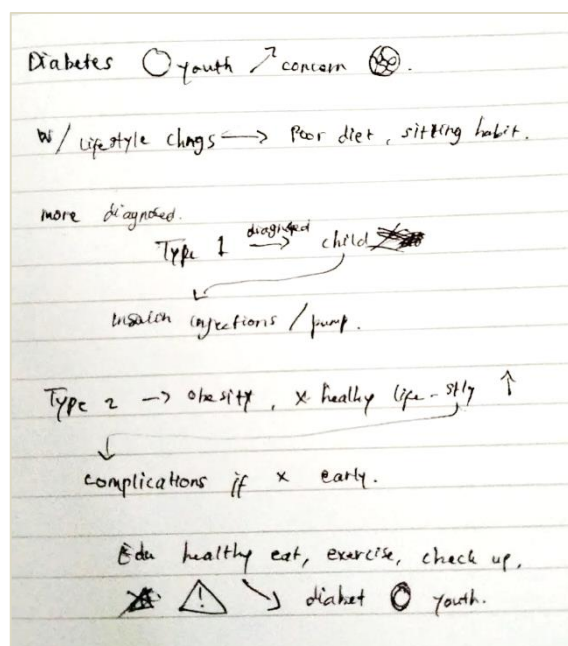 Diabetes ◯ youth ↗ concern .
w/ lifestyle chngs ⟷ Poor diet, sitting habit.
more diagnosed.
Type 1 diagnosed → child
insulin injections / pump.
Type 2 → obesity, x healthy life-stly ↑
complications if x early.
Edu healthy eat, exercise, check up,
⚠ ↘ diabet ◯ youth.